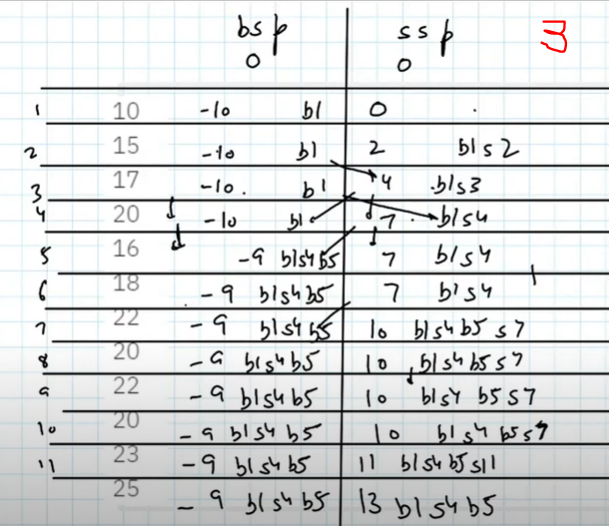 bsp ssp 3
0 0
1 10 -10 b1 0 .
2 15 -10 b1 2 b1s2
3 17 -10. b1 4 .b1s3
4 20 -10 b1 7. b1s4
5 16 -9 b1s4b5 7 b1s4
6 18 -9 b1s4b5 7 b1s4
7 22 -9 b1s4b5 10 b1s4b5s7
8 20 -9 b1s4b5 10 b1s4b5s7
9 22 -9 b1s4b5 10 b1s4 b5s7
10 20 -9 b1s4b5 10 b1s4 b5s7
11 23 -9 b1s4b5 11 b1s4b5s11
25 -9 b1s4b5 13 b1s4b5